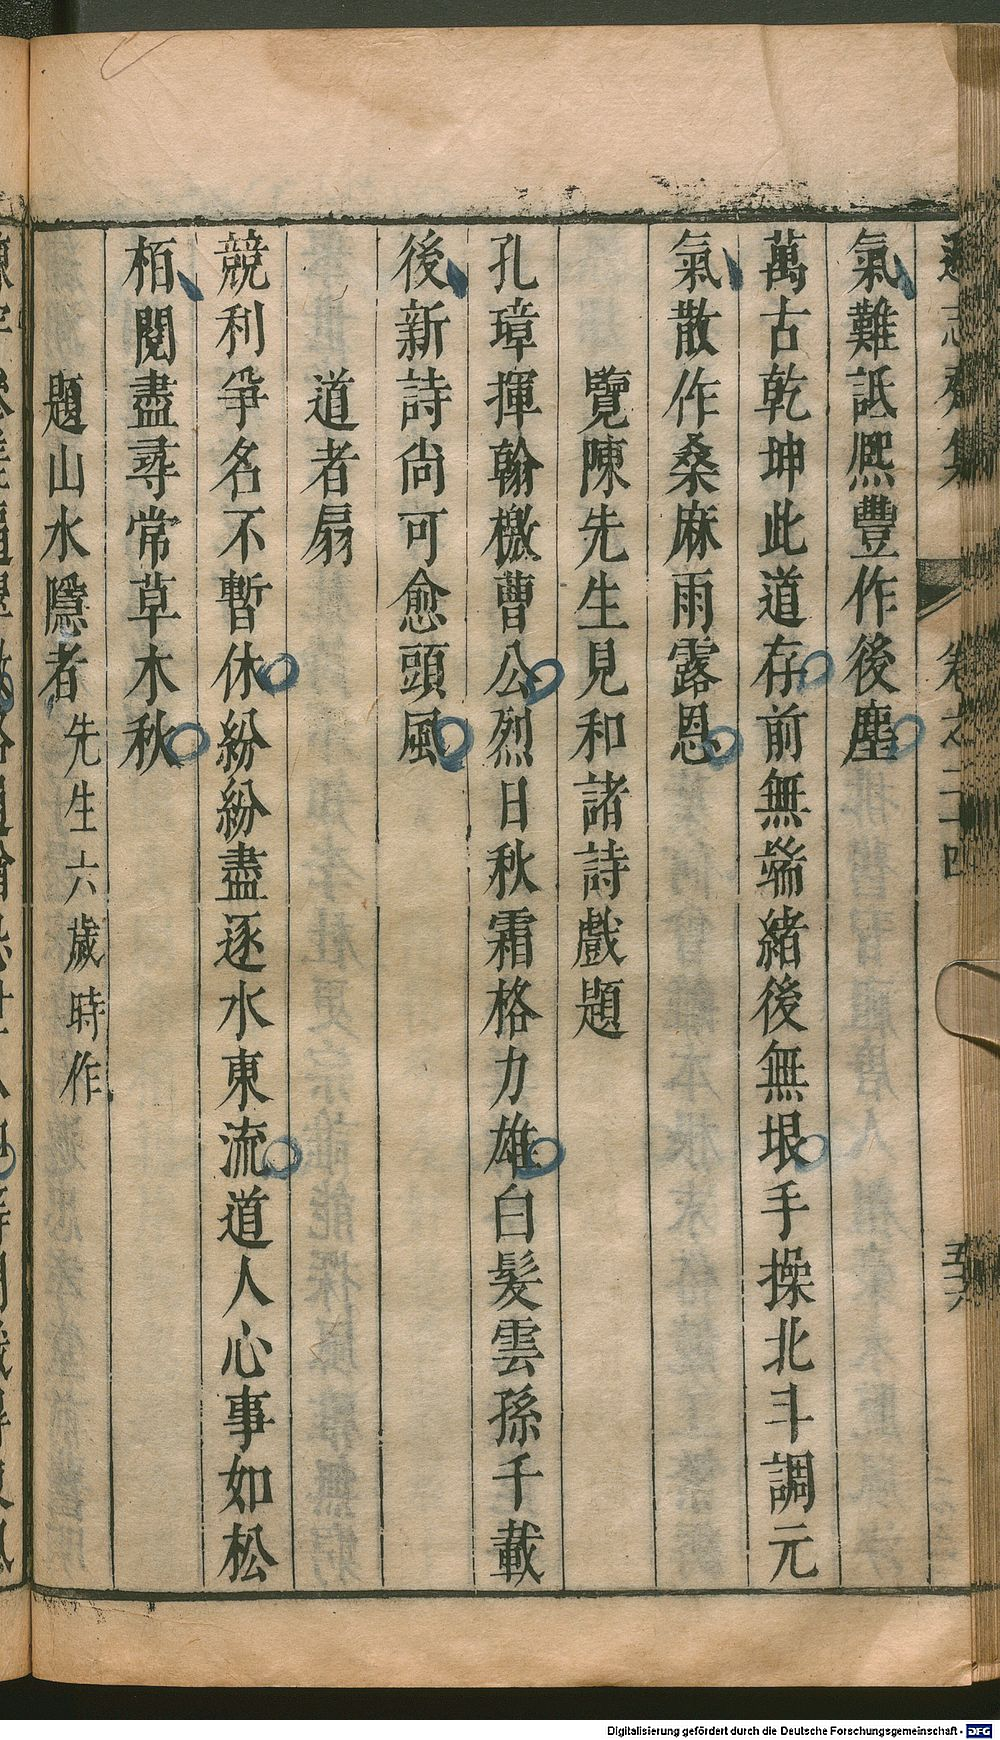 遜志齋集 卷之二十四
氣難詆熈豐作後塵
萬古乾坤此道存前無端緒後無垠手操北斗調元
氣散作桑麻雨露恩
覽陳先生見和諸詩戲題
孔璋揮翰檄曹公烈日秋霜格力雄白髮雲孫千載
後新詩尙可愈頭風
道者扇
競利爭名不暫休紛紛盡逐水東流道人心事如松
栢閱盡尋常草木秋
題山水隱者先生六歲時作
Digitalisierung gefördert durch die Deutsche Forschungsgemeinschaft - DFG